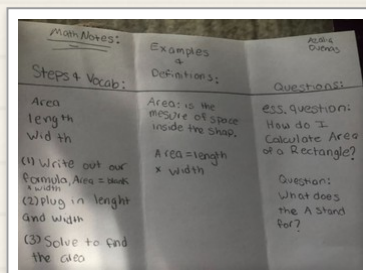 Math Notes:
Steps & Vocab:
Area
length
Width
(1) Write out our
formula, Area = 
x width
(2) plug in lenght
and width
(3) Solve to find
the area
Examples
&
Definitions:
Area: is the
mesure of space
inside the shap.
Area = length
x width
Duenas
Questions:
ess. question:
How do I
Calculate Area
of a Rectangle?
Question:
What does
the A stand
for?